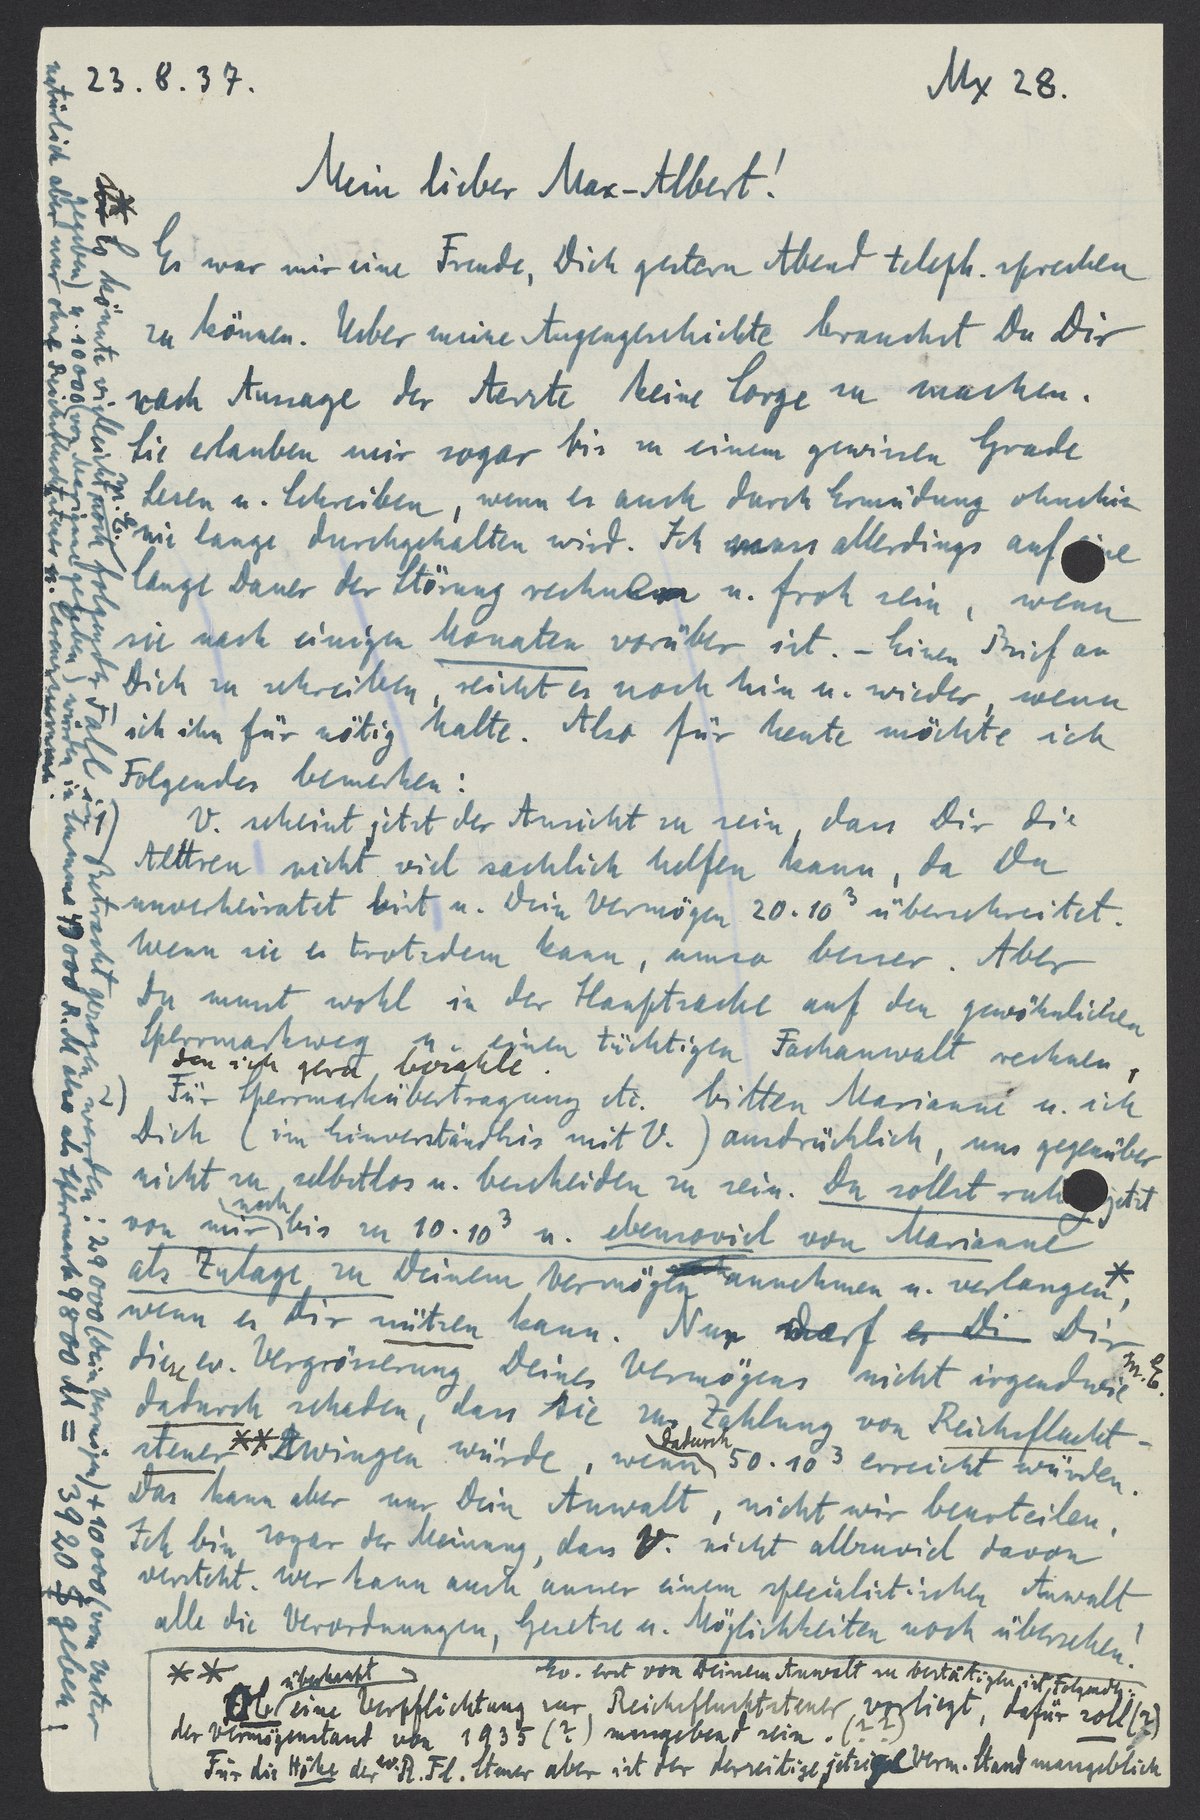 23.8.37.
Mx 28.
Mein lieber Max-Albert!
Es war mir eine Freude, Dich gestern Abend teleph. sprechen
zu können. Ueber meine Augengeschichte brauchst Du Dir
nach Aussage der Aerzte keine Sorge zu machen.
Sie erlauben mir sogar bis zu einem gewissen Grade
Lesen u. Schreiben, wenn es auch durch Ermüdung ohnehin
nie lange durchgehalten wird. Ich muss allerdings auf eine
lange Dauer der Störung rechnen u. froh sein, wenn
sie nach einigen Monaten vorüber ist. – Einen Brief an
Dich zu schreiben, reicht es noch hin u. wieder, wenn
ich ihn für nötig halte. Also für heute möchte ich
Folgendes bemerken:
1) V. scheint jetzt der Ansicht zu sein, dass Dir die
Altreu nicht viel sachlich helfen kann, da Du
unverheiratet bist u. Dein Vermögen 20·10³ überschreitet.
Wenn sie es trotzdem kann, umso besser. Aber
Du musst wohl in der Hauptsache auf den gewöhnlichen
Sperrmarkweg u. einen tüchtigen Fachanwalt rechnen,
den ich gern bezahle.
2) Für Sperrmarkübertragung etc. bitten Marianne u. ich
Dich (im Einverständnis mit V.) ausdrücklich, uns gegenüber
nicht zu selbstlos u. bescheiden zu sein. Du sollst ruhig jetzt
von mir noch bis zu 10·10³ u. ebensoviel von Marianne
als Zulage zu Deinem Vermögen annehmen u. verlangen*,
wenn es Dir nützen kann. Nur darf es Di Dir
diese ev. Vergrösserung Deines Vermögens nicht irgendwie m.E.
dadurch schaden, dass sie zur Zahlung von Reichsflucht-
steuer** zwingen würde, wenn dadurch 50·10³ erreicht würden.
Das kann aber nur Dein Anwalt, nicht wir beurteilen.
Ich bin sogar der Meinung, dass V. nicht allzuviel davon
versteht. Wer kann auch ausser einem specialistischen Anwalt
alle die Verordnungen, Gesetze u. Möglichkeiten noch übersehen!
** Ev. erst von Deinem Anwalt zu bestätigen ist Folgendes:
Ob überhaupt eine Verpflichtung zur Reichsfluchtsteuer vorliegt, dafür soll (?)
der Vermögenstand von 1935 (?) massgebend sein. (??)
Für die Höhe der ev. R.Fl. Steuer aber ist der derzeitige jetzige Verm. Stand massgeblich
* Es könnte vielleicht m.E. noch folgender Fall in Betracht gezogen werden: 29000 (Dein Vermögen) + 10000 (von Vater
gegeben) u. 10000 (von Marianne gegeben) würden in Summa 49000 R.M also als Sperrmark 9800 M = 3920 $ geben!
natürlich aber nur ohne Reichsfluchtsteuer u.